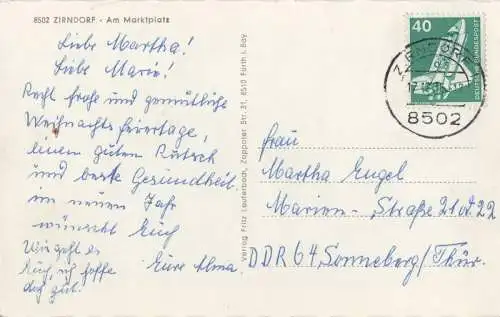 8502 ZIRNDORF - Am Marktplatz
Liebe Martha!
Liebe Marie!
Recht frohe und gemütliche
Weihnachtsfeiertage,
einen guten Rutsch
und beste Gesundheit
im neuen Jahr
wünscht Euch
Eure Alma
Wie geht es
Euch, ich hoffe
doch gut.
Verlag Fritz Lauterbach, Zappoter Str. 31, 8510 Fürth i. Bay.
40
DEUTSCHE BUNDESPOST
ZIRNDORF
8502
Frau
Martha Engel
Marien-Straße 21 od. 22
DDR 64 Sonneberg/Thür.